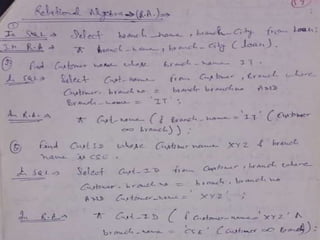 Relational Algebra → (R.A.) →
① In SQL → Select branch_name, branch_City from loan;
In R.A → π branch_name, branch_city (loan).
② Find Customer name where branch_name IT.
In SQL → Select Cust_name from Customer, Branch where
Customer.branch no = branch.branch no AND
Branch_name = 'IT';
In R.A. → π Cust_name (σ Branch_name = 'IT' (Customer
∞ branch));
Find Cust ID where Customer name XYZ & branch
name is CSE.
In SQL → Select Cust_ID from Customer, branch where
Customer.branch no = branch.branch no
AND Customer_name = 'XYZ' ;
In R.A → π Cust_ID (σ Customer_name = 'XYZ' ∧
branch_name = 'CSE' (Customer ∞ Branch);